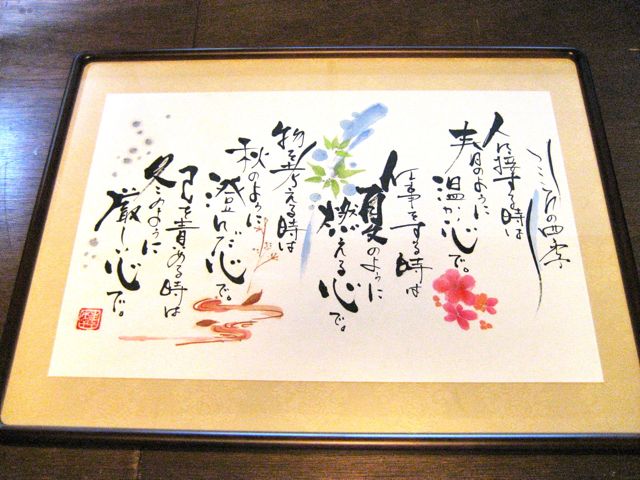 こころの四季
人に接する時は
春のように
温かい心で。
仕事をする時は
夏のように
燃える心で。
物を考える時は
秋のように
澄んだ心で。
己を責める時は
冬のように
厳しい心で。